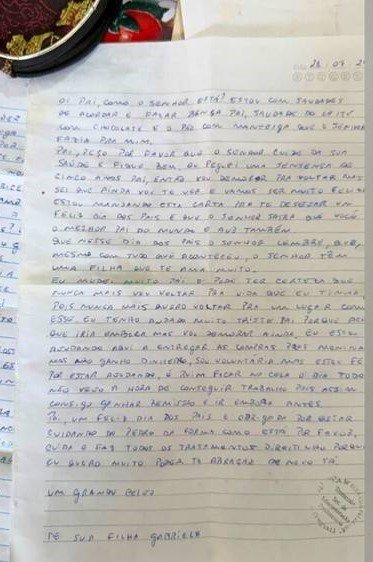 28 07
OI PAI, COMO O SENHOR ESTÁ? ESTOU COM SAUDADES
DE ACORDAR E FALAR BENÇA PAI, SAUDADES DO LEITE
COM CHOCOLATE E O PÃO COM MANTEIGA QUE O SENHOR
FAZIA PRA MIM.
PAI, PEÇO POR FAVOR QUE O SENHOR CUIDE DA SUA
SAÚDE E FIQUE BEM, EU PEGUEI UMA SENTENSA DE
CINCO ANOS PAI, ENTÃO VOU DEMORAR PRA VOLTAR MAS
SEI QUE AINDA VOU TE VER E VAMOS SER MUITO FELIZ
ESTOU MANDANDO ESTA CARTA PRA TE DESEJAR UM
FELIZ DIA DOS PAIS E QUE O SENHOR SAIBA QUE VOCÊ
O MELHOR PAI DO MUNDO E AVÔ TAMBÉM.
QUE NESSE DIA DOS PAIS O SENHOR LEMBRE, QUE,
MESMO COM TUDO QUE ACONTECEU, O SENHOR TEM
UMA FILHA QUE TE AMA MUITO.
EU MUDEI MUITO PAI E PODE TER CERTEZA QUE
NUNCA MAIS VOU VOLTAR PRA VIDA QUE EU TINHA,
POIS NUNCA MAIS QUERO VOLTAR PRA UM LUGAR COMO
ESSE EU TENHO FICADO MUITO TRISTE PAI PORQUE ACHEI
QUE IRIA EMBORA MAS VOU DEMORAR AINDA, EU ESTOU
AJUDANDO AQUI A ENTREGAR AS COMPRAS PRAS MENINAS
MAS NÃO GANHO DINHEIRO, SOU VOLUNTÁRIA MAS ESTOU FE
POR ESTAR AJUDANDO, É RUIM FICAR NA CELA O DIA TODO
NÃO VEJO A HORA DE CONSEGUIR TRABALHO POIS ASSIM
CONSIGO GANHAR REMISSÃO E IR EMBORA ANTES.
PAI, UM FELIZ DIA DOS PAIS E OBRIGADA POR ESTAR
CUIDANDO DO PEDRO DA FORMA COMO ESTÁ POR FAVOR,
CUIDA E FAZ TODOS OS TRATAMENTOS DIREITINHO PORQUE
EU QUERO MUITO PODER TE ABRAÇAR DE NOVO TÁ.
UM GRANDE BEIJO
DE SUA FILHA GABRIELA